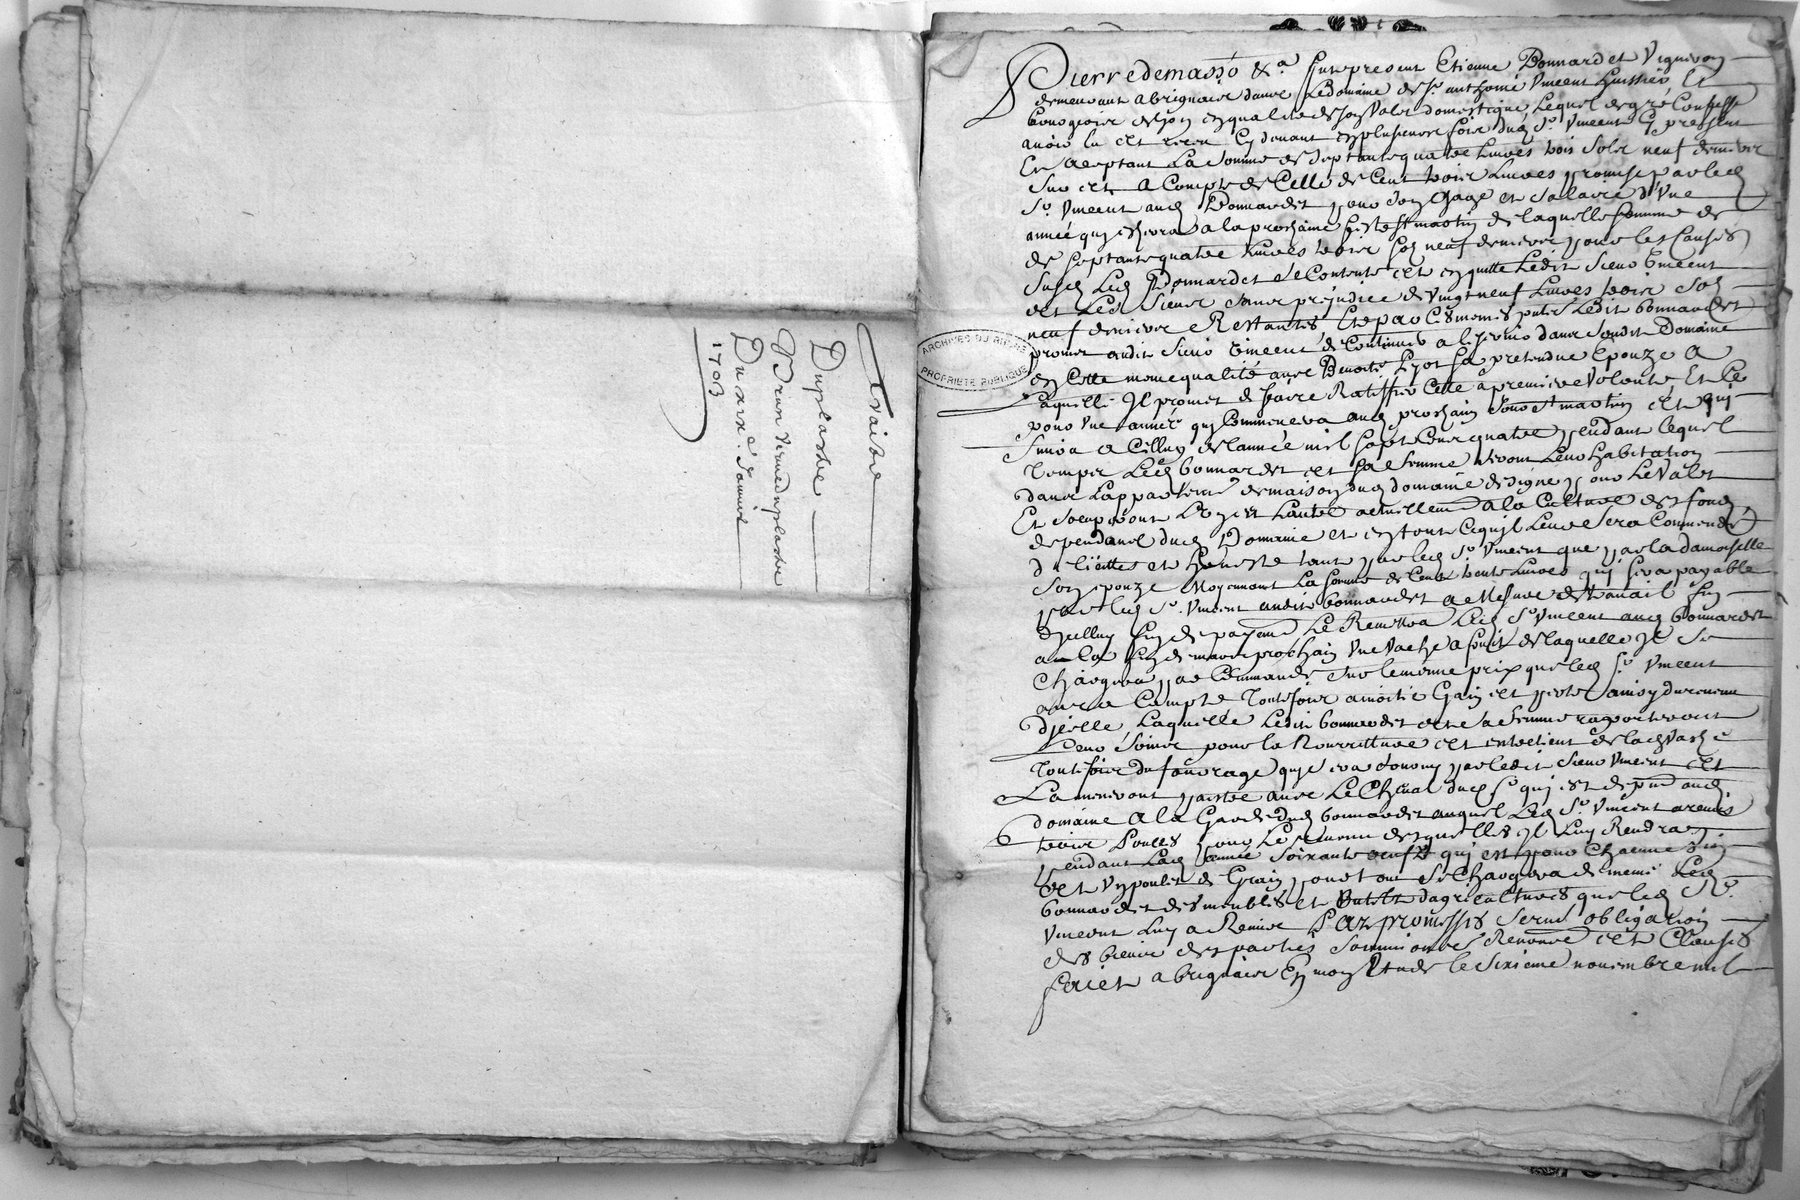 Traitté
Duplastre
Brun veuve duplastre
Du xxve. Janvier
1703
ARCHIVES DU RHONE
PROPRIETE PUBLIQUE
Pierre demasso &a. fut present Etienne Bonnardet Vigneron
demeurant a brignais dans le domaine de Sr. anthoine Vincent huissier Et
bourgeois de lyon en qualité de son Valet domestique, Lequel de gré Confesse
avoir eu et receu cy devant en plusieurs fois dud. Sr. Vincent cy present
Et aceptant La somme de septante quatre Livres trois sols neuf deniers
sur et a Compte de Celle de Cent trois Livres promise par led.
Sr. Vincent aud. Bonnardet pour son Gage et salaire d'Une
année quj eschera a la prochaine feste st martin de laquelle somme de
de septante quatre Livres trois sols neuf deniers pour les Causes
susd. Led. Bonnardet se Contente et en quitte Ledit sieur Vincent
et Les siens sans prejudice de vingt neuf Livres trois sols
neuf deniers Restantes, Et par Cesmemes putes Ledit bonnardet
promet audit sieur Vincent de Continuer a le servir dans sondit Domaine
en Cette meme qualité avec Benoite Lyot sa pretendue Epouze a
Laquelle Il promet de faire Ratiffier Cette a premiere Volonté, Et Ce
pour Une année quj Commencera aud. prochain jour st martin et quj
finira a Celluy de lannée mil sept Cent quatre pendant lequel
temps Led. bonnardet et sa femme seront Leur habitation
dans Lappartemt. de maison dud. domaine designé pour Le Valet
Et soccuperont L'un et Lautre actuellemt. a la Culture des fonds
dependants dud. Domaine et en tout Ce quj leur sera Commendé
de licittes et honneste tant par led. Sr. Vincent que par la damoiselle
son epouze Moyennant La somme de Cent trente Livres quj sera payable
par led. Sr. Vincent audit bonnardet a Mesure de travail fin
d'jcelluy fin de payemt. Le Remettra Led. Sr Vincent aud. bonnardet
a la fin de mars prochain Une Vache a fruit de laquelle Il se
Chargera par Commande sur le meme prix que led. Sr. Vincent
aura Compté toutefois a moitié Gain et perte ainsy du revenu
d'jcelle, Laquelle Ledit bonnardet et sa femme raporteront
Leurs soins pour la Nourriture et entretient de lad. Vache
toutefois du fourrage quj sera donné par ledit sieur Vincent et
La meneront paistre avec Le Cheval dud. Sr quj est de pnt. aud.
domaine a la Garde dud. bonnardet auquel Led. Sr. Vincent a remis
trois Poules pour Le revenu desquelles Il Luy Rendra
pendant Lad. année soixante oeufs quj est pour Chacune
et Un poulet de Grain pour tout se Chargera de meme Led.
bonnardet des meubles et outils dagricultures que led. Sr.
Vincent Luy a Remise Par promesses serment obligation
des biens des parties soumissions Renonce et Clauses
faict a brignais En mon Etude le sixieme novembre mil